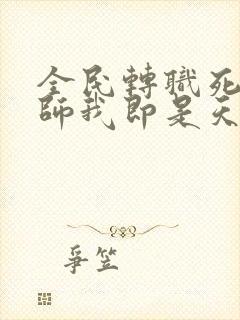 全民轉職死
師我即是天
爭笠